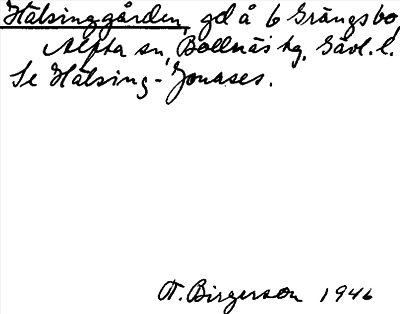 Hälsinggården, gd å 6 Grängsbo,
Alfta sn, Bollnäs tg, Gävl. l.
Se Hälsing-Jonases.
T. Birgerson 1946